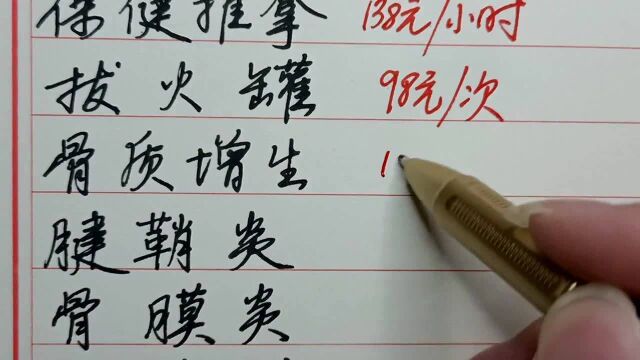 保健推拿 138元/小时
拔火罐 98元/次
骨质增生 1
腱鞘炎
骨膜炎